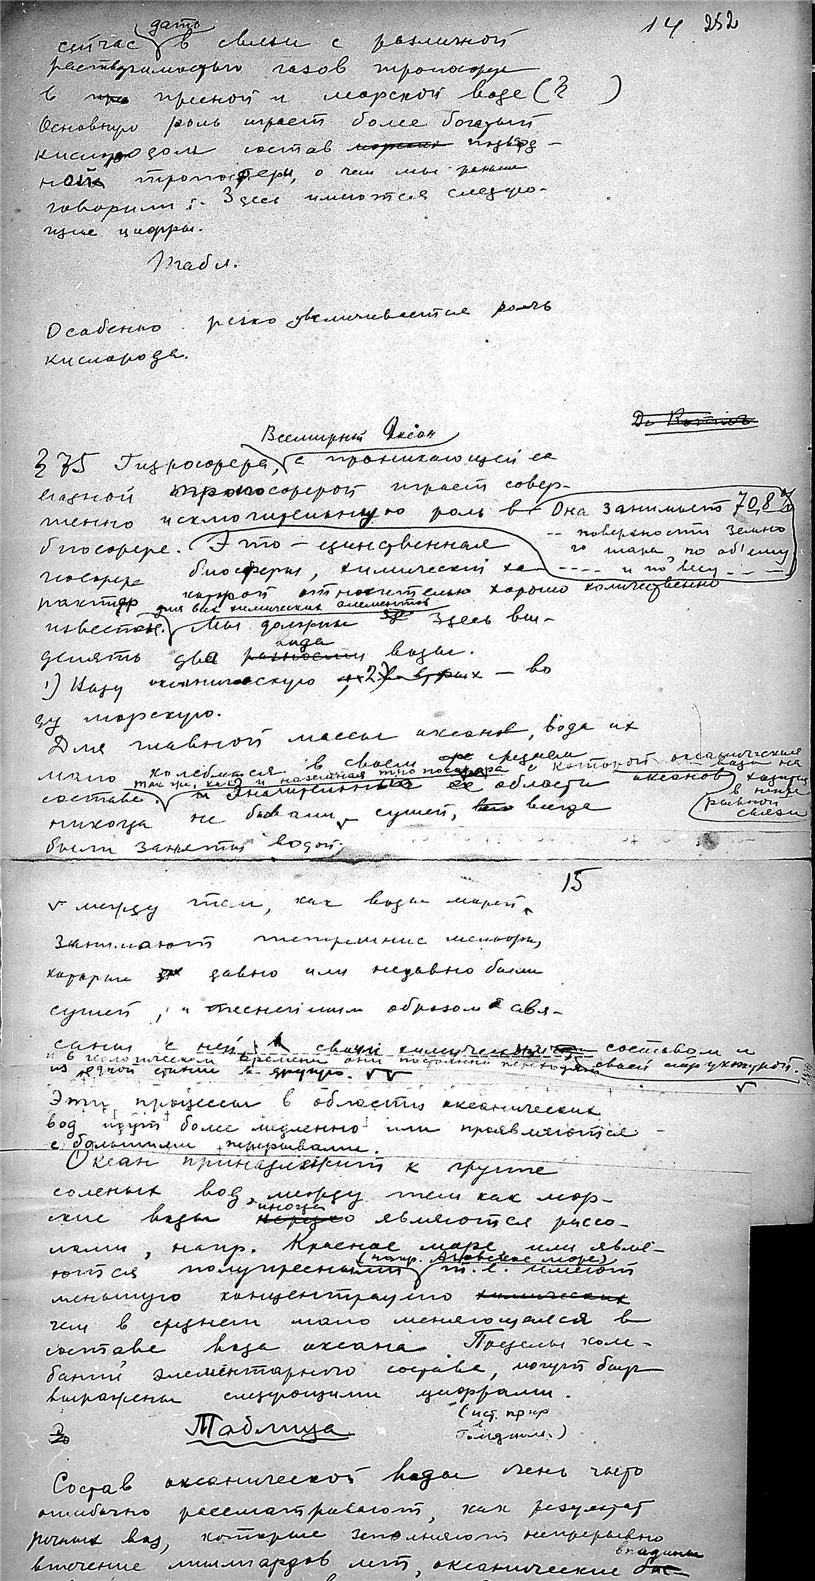 14 252
дать
сейчас в связи с различной
растворимостью газов тропосферы
в пресной и морской воде (§ )
Основную роль играет более богатый
кислородом состав подвод-
ной тропосферы, о чем мы раньше
говорили. Здесь имеются следую-
щие цифры.
Табл.
Особенно резко увеличивается роль
кислорода.
Всемирный Океан
§ 75 Гидросфера, с проникающей ее
водной тропосферой играет совер-
шенно исключительную роль в
Она занимает 70,8%
-- поверхности земно
го шара, по объему
---- и по весу ----
биосфере. Это – единственная
геосфера биосферы, химический ха-
рактер которой относительно хорошо количественно
для всех химических элементов
известен. Мы должны здесь вы-
вида
делять два разности воды.
1) Воду океаническую, 2) – во
ду морскую.
Для главной массы океанов, вода их
мало колеблется в своем среднем
так же, как и наземная тропосфера с которой океаническая
вода на
составе. Значительные области океанов
ходится
в непре
рывной
связи
никогда не бывали сушей, всегда
были заняты водой,
15
между тем, как воды морей
занимают теперешние
которые давно или недавно были
сушей, и теснейшим образом свя-
саны с ней своим химическим составом и
своей структурой.
и в геологическом времени они постоянно переходят
из одной стадии в другую.
Эти процессы в области океанических
вод идут более медленно или проявляются
с большими перерывами.
Океан принадлежит к группе
соленых вод, между тем как мор-
иногда
ские воды нередко являются рассо-
лами, напр. Красное море или явля-
(напр. Азовское море)
ются полупресными т.е. имеют
меньшую концентрацию химических
чем в среднем мало меняющаяся в
составе вода океана. Пределы коле-
баний элементарного состава, могут быть
выражены следующими цифрами.
Таблица
(ист. прир
)
Состав океанической воды очень часто
ошибочно рассматривают, как результат
речных вод, которые заполняют непрерывно
впадины
в течение миллиардов лет, океанические